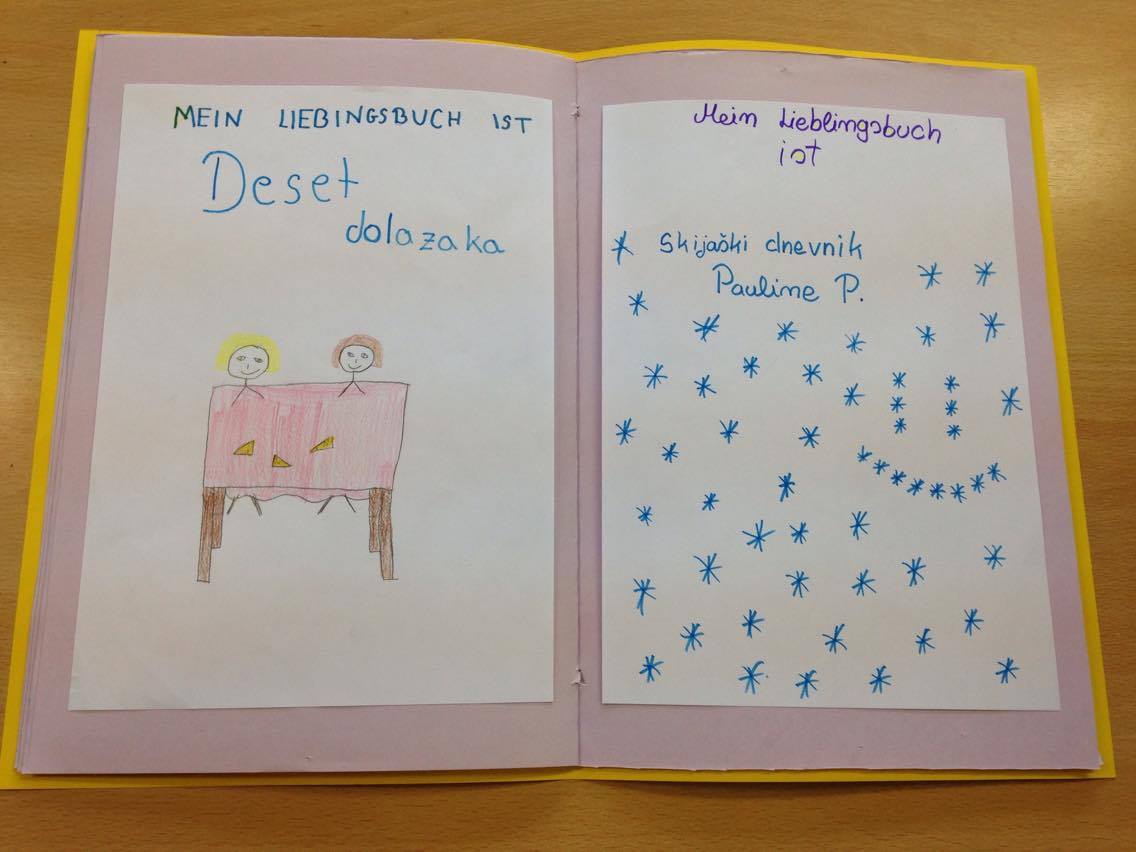 MEIN LIEBINGSBUCH IST
Deset
dolazaka
Mein Lieblingsbuch
ist
Skijaški dnevnik
Pauline P.